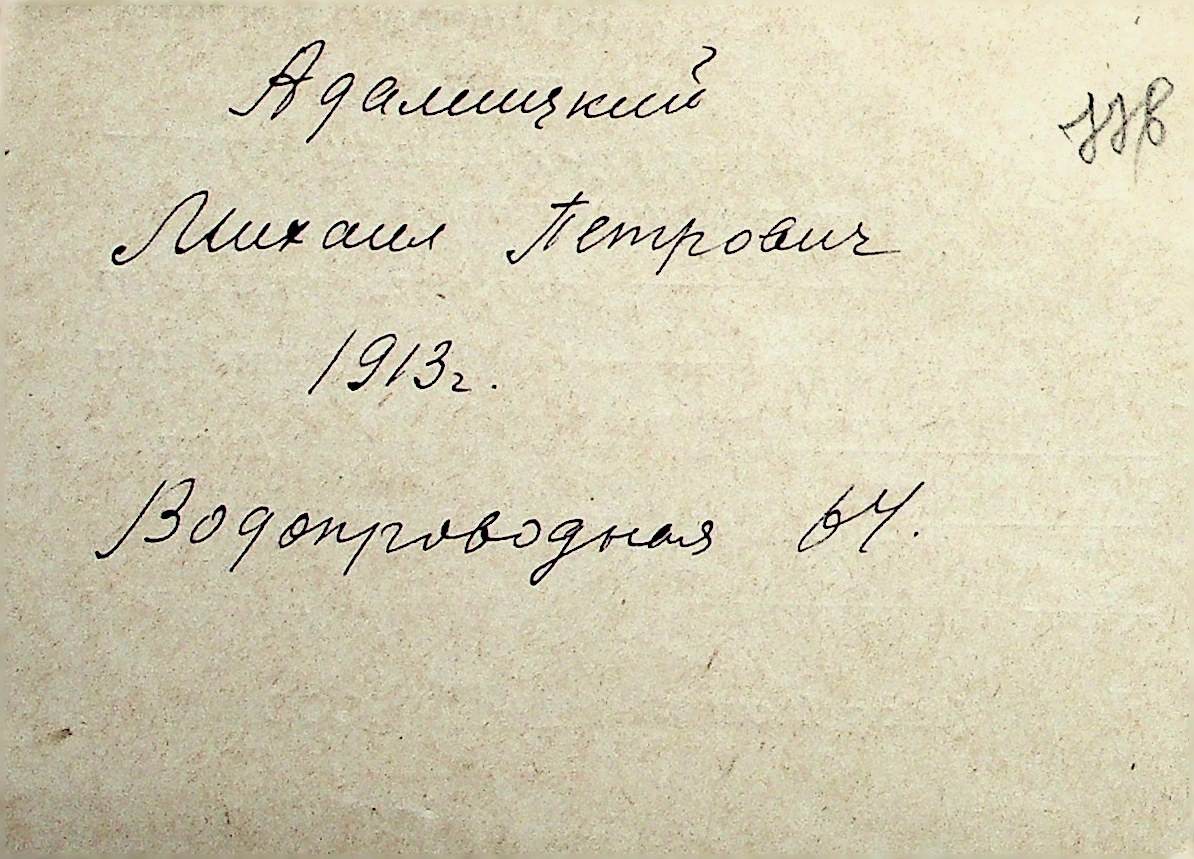 Адамицкий
Михаил Петрович
1913г.
Водопроводная 64.